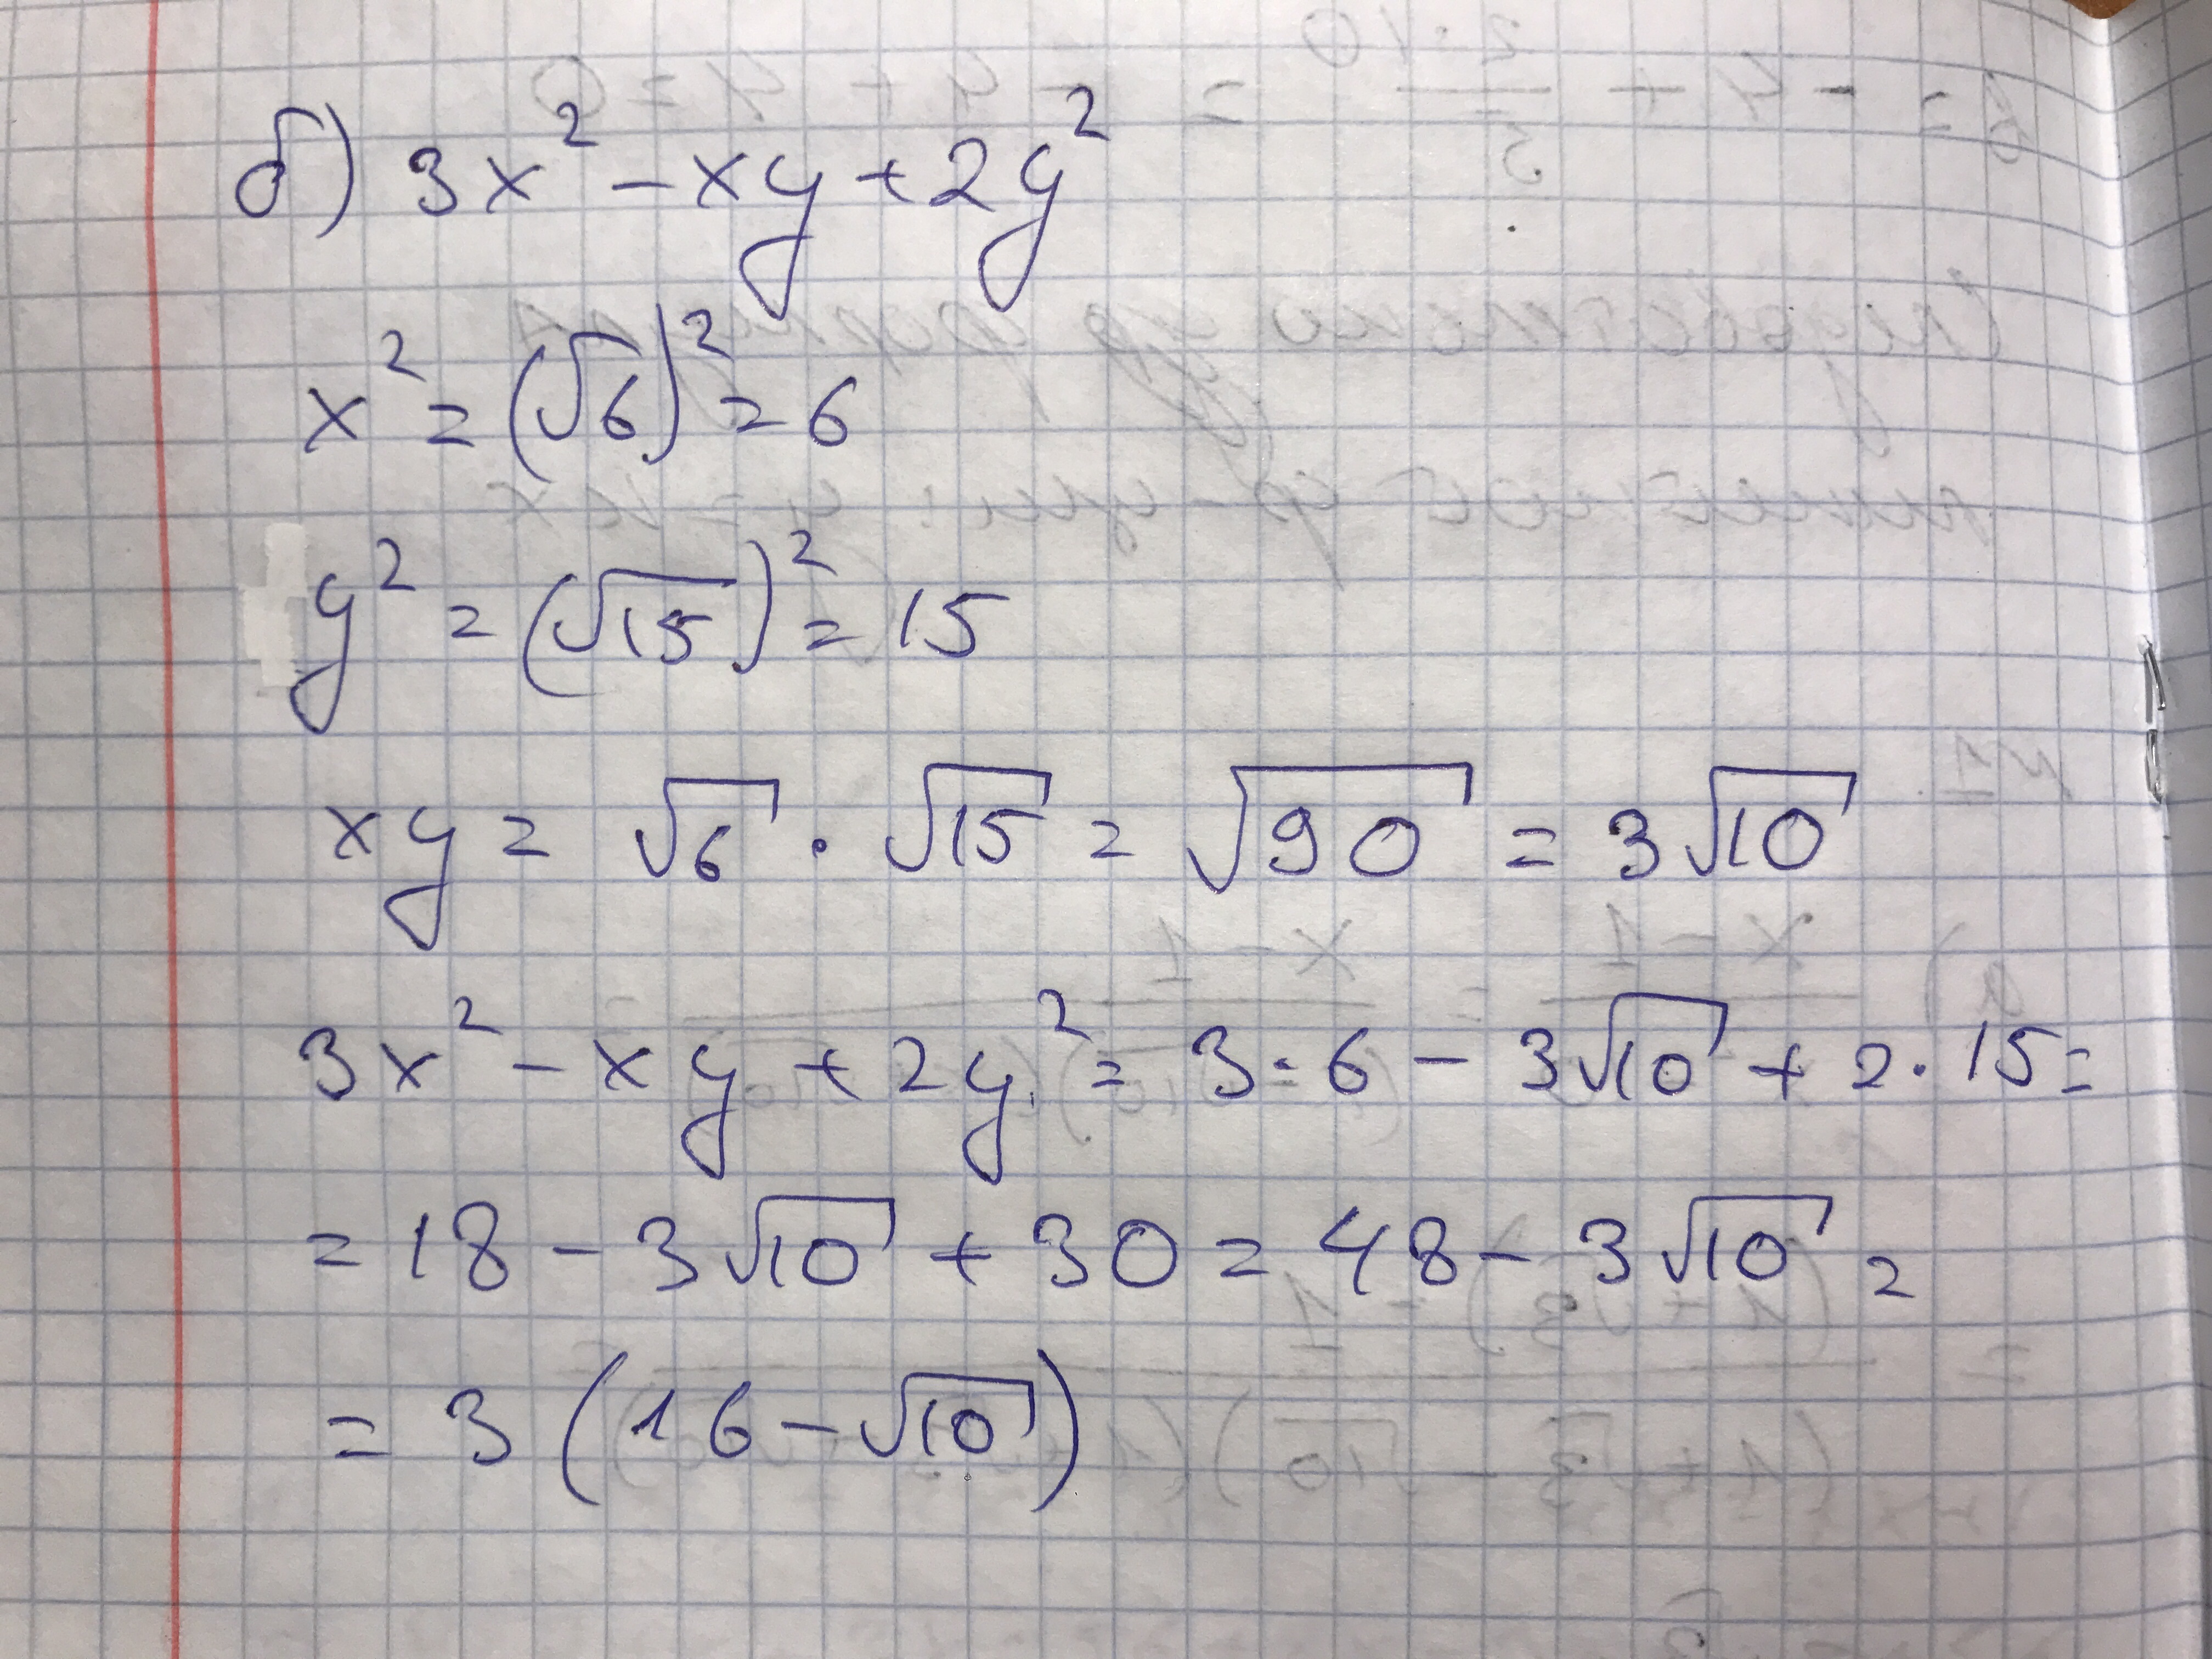 б) 3x² - xy + 2y²
x² = (√6)² = 6
y² = (√15)² = 15
xy = √6 · √15 = √90 = 3√10
3x² - xy + 2y² = 3·6 - 3√10 + 2·15 =
= 18 - 3√10 + 30 = 48 - 3√10 =
= 3(16 - √10)